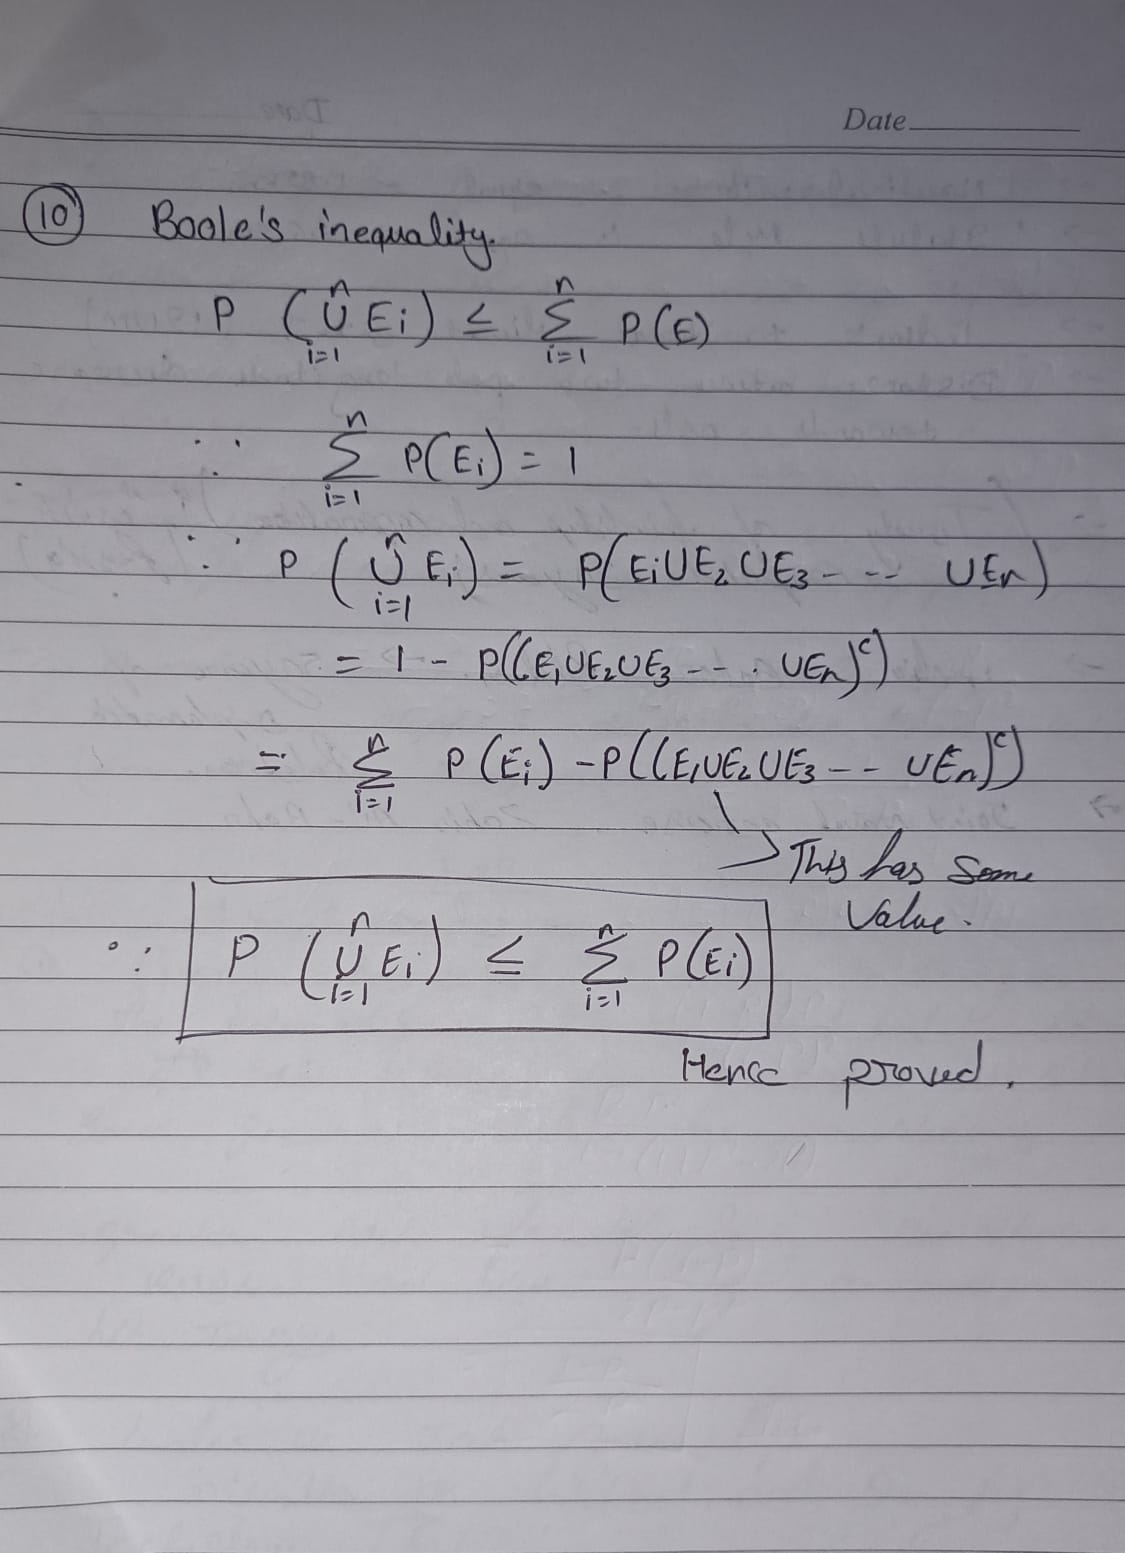 Date
10 Boole's inequality.
P (n∪i=1 Ei) ≤ n∑i=1 P(E)
∵ n∑i=1 P(Ei) = 1
∵ P (n∪i=1 Ei) = P(E1∪E2∪E3 - -- ∪En)
= 1 - P((E1∪E2∪E3 -- . ∪En)c)
= n∑i=1 P(Ei) - P((E1∪E2∪E3 -- ∪En)c)
This has some
Value.
∵ P (n∪i=1 Ei) ≤ n∑i=1 P(Ei)
Hence proved.